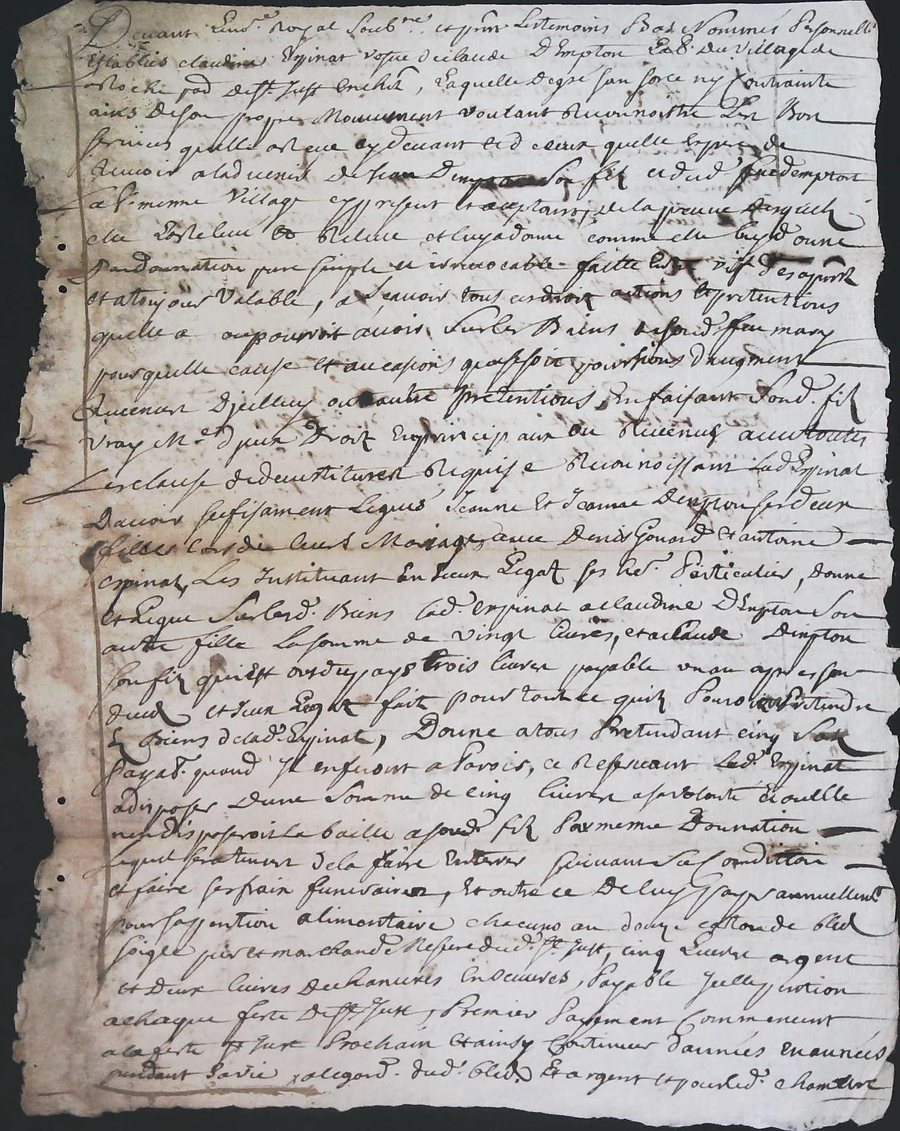 Devant le nore Royal Soubne et pnt les temoins Bas Nommés Personnellt
Establies claudine Espinat vefve de claude D'Empton Lab. du Village de
Roche pad de St Just en chlt, Laquelle de gre san force ny Contrainte
ains de son propre Mouvement voulant Reconnoistre Les Bon
services quelle a Receue cy devant et d ceux quelle espere de
Recevoir a ladvenir de Jean Dempton Son filz et dud. feu dempton
La meme Village cy present et acceptant, de la preuve desquels
elle La Releve et Releve et luy a donne comme elle luy donne
Par donnation pure simple et irrevocable faitte Entre vif Des apprt
et a toujours Valable, a Scavoir tous ces droit actions et pretentions
quelle a ou pourroit avoir Sur les Biens de sond. feu mary
pour quelle cause et occasions que ce soit provisions d'augment
Revenus D'iceluy ou autre pretentions, En faisant Sond. filz
vray Me d'yceux Droit En principaux ou Revenus avec toutes
Les clause de devestitures Requise Reconnoissant Lad. Espinat
Davoir sufisament Legué Jeanne Et Jeanne Dempton ses deux
filles lors de leurs Mariages avec Denis Gouard et antoine
espinat, Les Instituant En iceux Legat ses her. Particulier, donne
et Legue Sur lesd. Biens lad. Espinat a claudine D'Empton Son
autre fille La somme de vingt livres, et a claude Dempton
son filz qui Est hors du pays trois livres payable un an apres son
deces et iceux Legat fait pour tout ce quils Pourroient Pretendre
Es Biens de lad. Espinat, Donne a tous Pretendant cinq Solz
Payab. quand Il en feront a Paroir, ce Reservant Lad. Espinat
a disposer D'une Somme de cinq livres a sa volonte et ou elle
nen disposeroit la baille a sond. filz Par meme Donnation
Lequel sera tenu de la faire Enterrer suivant Sa Condition
et faire ses frais funeraires, Et outre ce De luy Payer annuellemt
pour sa pention alimentaire chacuns an douze carton de bled
soigle pur et marchande Mesure dud. St Just, cinq Livres argent
et Deux livres De chanvres En Oeuvres, Payable Icelle pention
a chaque feste de St Just, Premier Payement Commencent
a la feste St Just Prochain et ainsy Continuer d'années en années
pendant Sa vie, a legard dud. bled Et argent et pour led. chamvre